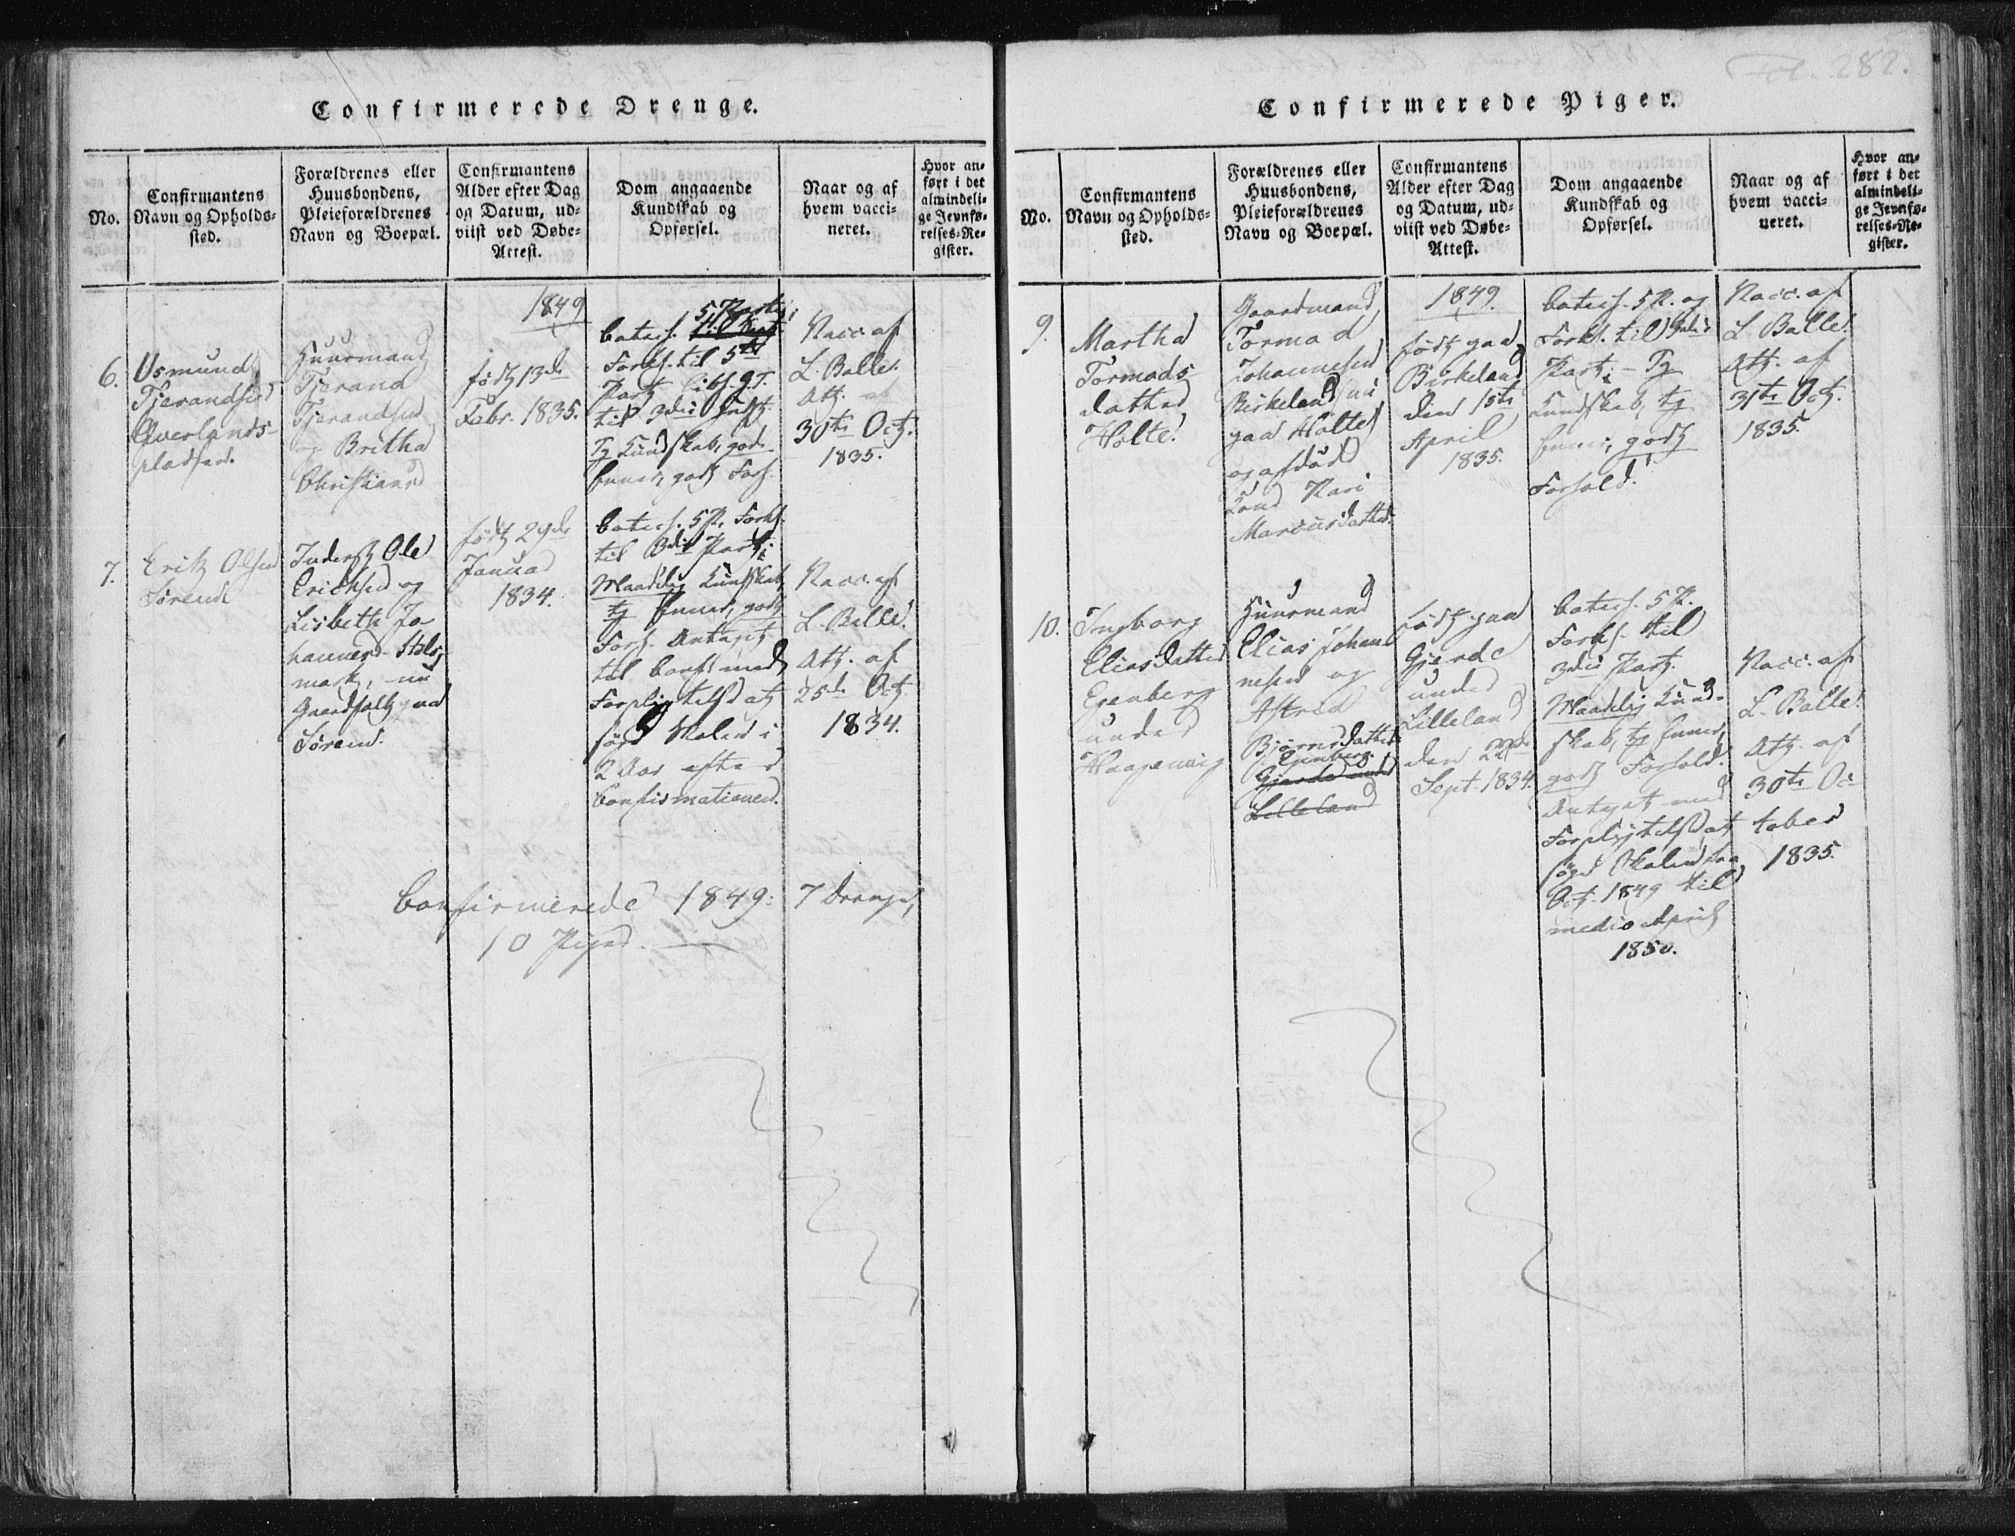 Fol. 282.
Confirmerede Drenge.
No.
Confirmantens
Navn og Opholds-
sted.
Forældrenes eller
Huusbondens,
Pleieforældrenes
Navn og Boepæl.
Confirmantens
Alder efter Dag
og Datum, ud-
viist ved Døbe-
Attest.
Dom angaaende
Kundskab og
Opførsel.
Naar og af
hvem vacci-
neret.
Hvor an-
ført i det
almindeli-
ge Jevnfø-
relses-Re-
gister.
6.
Osmund
Tjerandsen
Qverlands-
pladsen.
Huusmand
Tjerand
Tjerandsen
og Britha
Christians
1849
født 13de
Febr. 1835.
5 Parti
Catech.
Forkl. til 5te
Part
til 3die
Tg Kundskab, god
Vacc. af
L. Balle.
Att. af
30te Oct.
1835.
7.
Erik Olsen
Sørend
Inderst Ole
Ericksen og
Lisbeth Jo-
hannesd.
nu
Gaardfolk paa
Sørend.
født 29de
Januar
1834.
Catech. 5 P. Forkl.
til 3die Part
Maadelig Kundskab,
tg Evner, godt
Forh. Antaget
til Conf. med
Forpligtelse at
søge Skolen i
2 Aar efter
Confirmationen.
Vacc. af
L. Balle.
Att. af
25de Oct.
1834.
Confirmerede 1849: 7 Drenge,
10 Piger.
Confirmerede Piger.
No.
Confirmantens
Navn og Opholds-
sted.
Forældrenes eller
Huusbondens,
Pleieforældrenes
Navn og Boepæl.
Confirmantens
Alder efter Dag
og Datum, ud-
viist ved Døbe-
Attest.
Dom angaaende
Kundskab og
Opførsel.
Naar og af
hvem vacci-
neret.
Hvor an-
ført i det
almindeli-
ge Jevnfø-
relses-Re-
gister.
9.
Martha
Tormods
datter
Holte.
Gaardmand
Tormod
Johannesen
Birkeland, nu
paa Holte
og afdød
Kone Kari
Marcusdatter.
1849.
født paa
Birkeland
den 15te
April
1835.
Catech. 5 P. og
Forkl. til 3die
Part; – Tg
Kundskab, tg
Evner, godt
Forhold.
Vacc. af
L. Balle.
Att. af
31te Oct.
1835.
10.
Ingborg
Eliasdatter
Egenberg
under
Haapenvig
Huusmand
Elias Johan-
nesen og
Astred
Bjørnsdatter
Egenberg
Gjerde under
Lilleland
Født paa
Gjerde
under
Lilleland
den 22de
Sept. 1834.
Catech. 5 P.
Forkl. til
3die Part.
Maadelig Kund-
skab, tg Evner,
godt Forhold.
Antaget med
Forpligtelse at
søge Skolen fra
Oct. 1849 til
medio April
1850.
Vacc. af
L. Balle.
Att. af
30te Oc-
tober
1835.